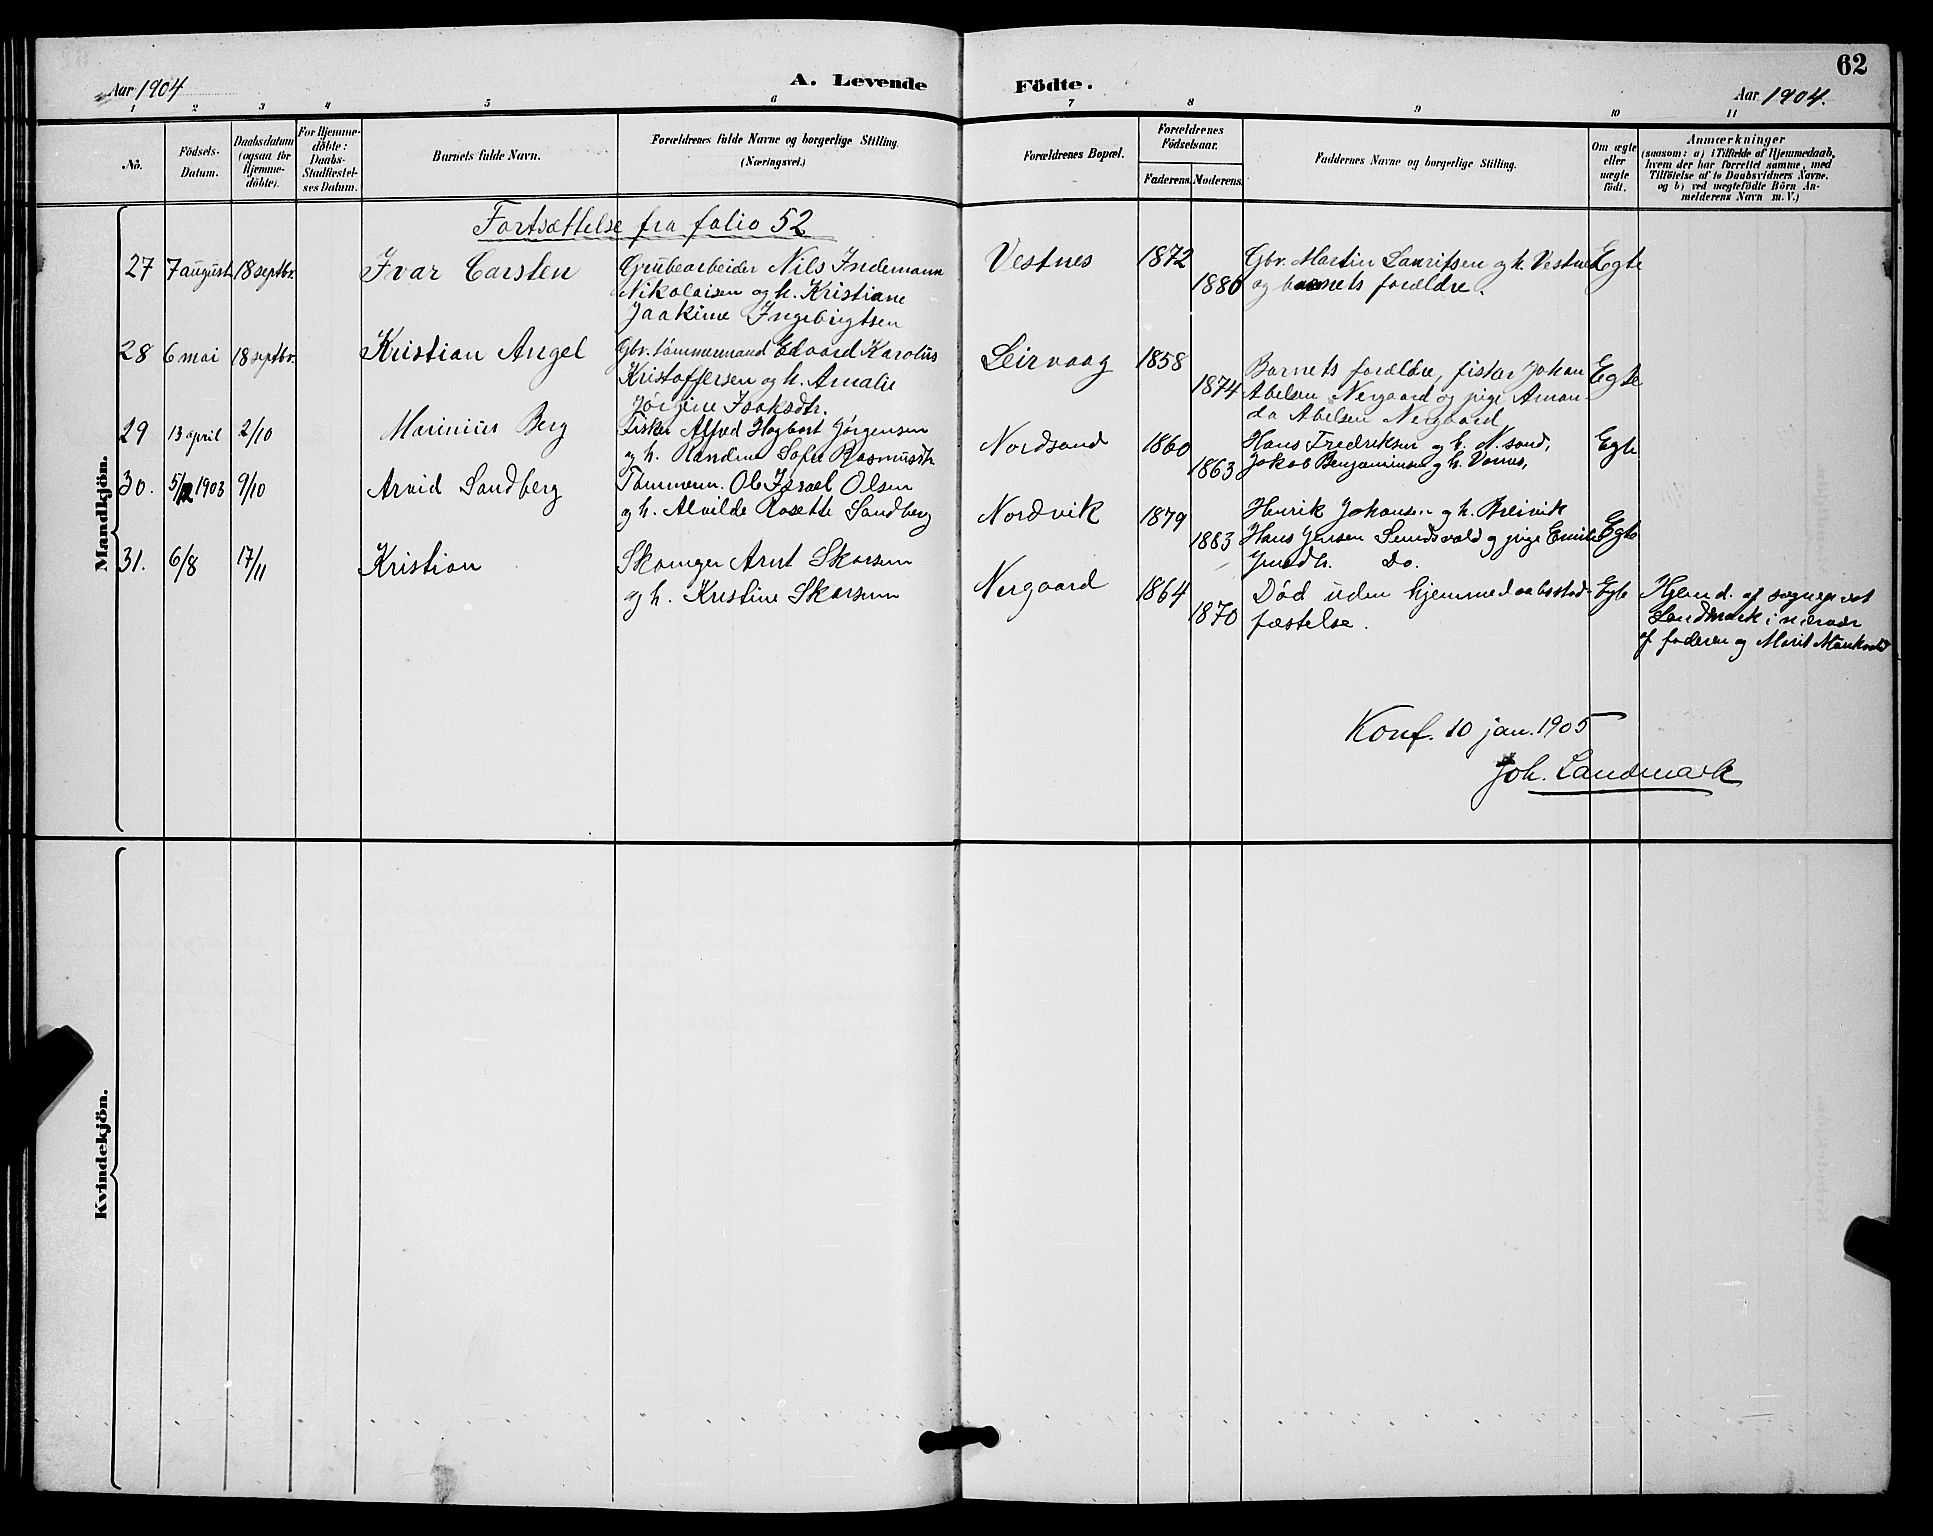 62
Aar 1904
A. Levende Födte.
Aar 1904.
1 2 3 4 5 6 7 8 9 10 11
No. Födsels-Datum. Daabsdatum (ogsaa for Hjemme-döbte). For Hjemme-döbte: Daabs-Stadfæstel-ses Datum. Barnets fulde Navn. Forældrenes fulde Navne og borgerlige Stilling. (Næringsvei.) Forældrenes Bopæl. Forældrenes Födselsaar. Faderens. Moderens. Faddernes Navne og borgerlige Stilling. Om ægte eller uægte födt. Anmærkninger (saasom: a) i Tilfælde af Hjemmedaab, hvem der har forrettet samme, med Tilföielse af to Daabsvidners Navne, og b) ved uægtefödte Börn An-melderens Navn m. V.)
Mandkjön.
Fortsættelse fra folio 52
27 7 august 18 septbr. Ivar Carsten Grubearbeider Nils Indemann Vestnes 1872 Gbr. Martin Lauritsen og h. Vestnes Egte
Nikolaisen og h. Kristiane 1880 og barnets forældre.
Jaakime Ingebrigtsen
28 6 mai 18 septbr. Kristian Angel Gbr. tømmermand Edvard Karolus Leirvaag 1858 Barnets forældre, fisker Johan Egte
Kristoffersen og h. Amalie 1874 Abelsen Nergaard og pige Aman-
Jørgine Isaksdtr. da Abelsen Nergaard
29 13 april 2/10 Marinius Berg Fisker Alfred Hagbart Jørgensen Nordsand 1860 Hans Fredriksen og h. N.sand, Egte
og h. Randine Sofie Rasmusdtr 1863 Jakob Benjaminsen og h.
30. 5/12 1903 9/10 Arvid Sandberg Tømmerm. Ole Israel Olsen Nordvik 1879 Henrik Johansen og h. Breivik Egte
og h. Alvilde Rosette Sandberg 1883 Hans Jensen og pige Emilie
Do.
31. 6/8 17/11 Kristian Arnt Skarsem Nergaard 1864 Død uden hjemmedaabsstad- Egte Hjemd. af sogneprest
og h. Kristine Skarsem 1870 fæstelse. Landmark i nærvær
af faderen og Marit
Konf. 10 jan. 1905
Joh. Landmark
Kvindekjön.